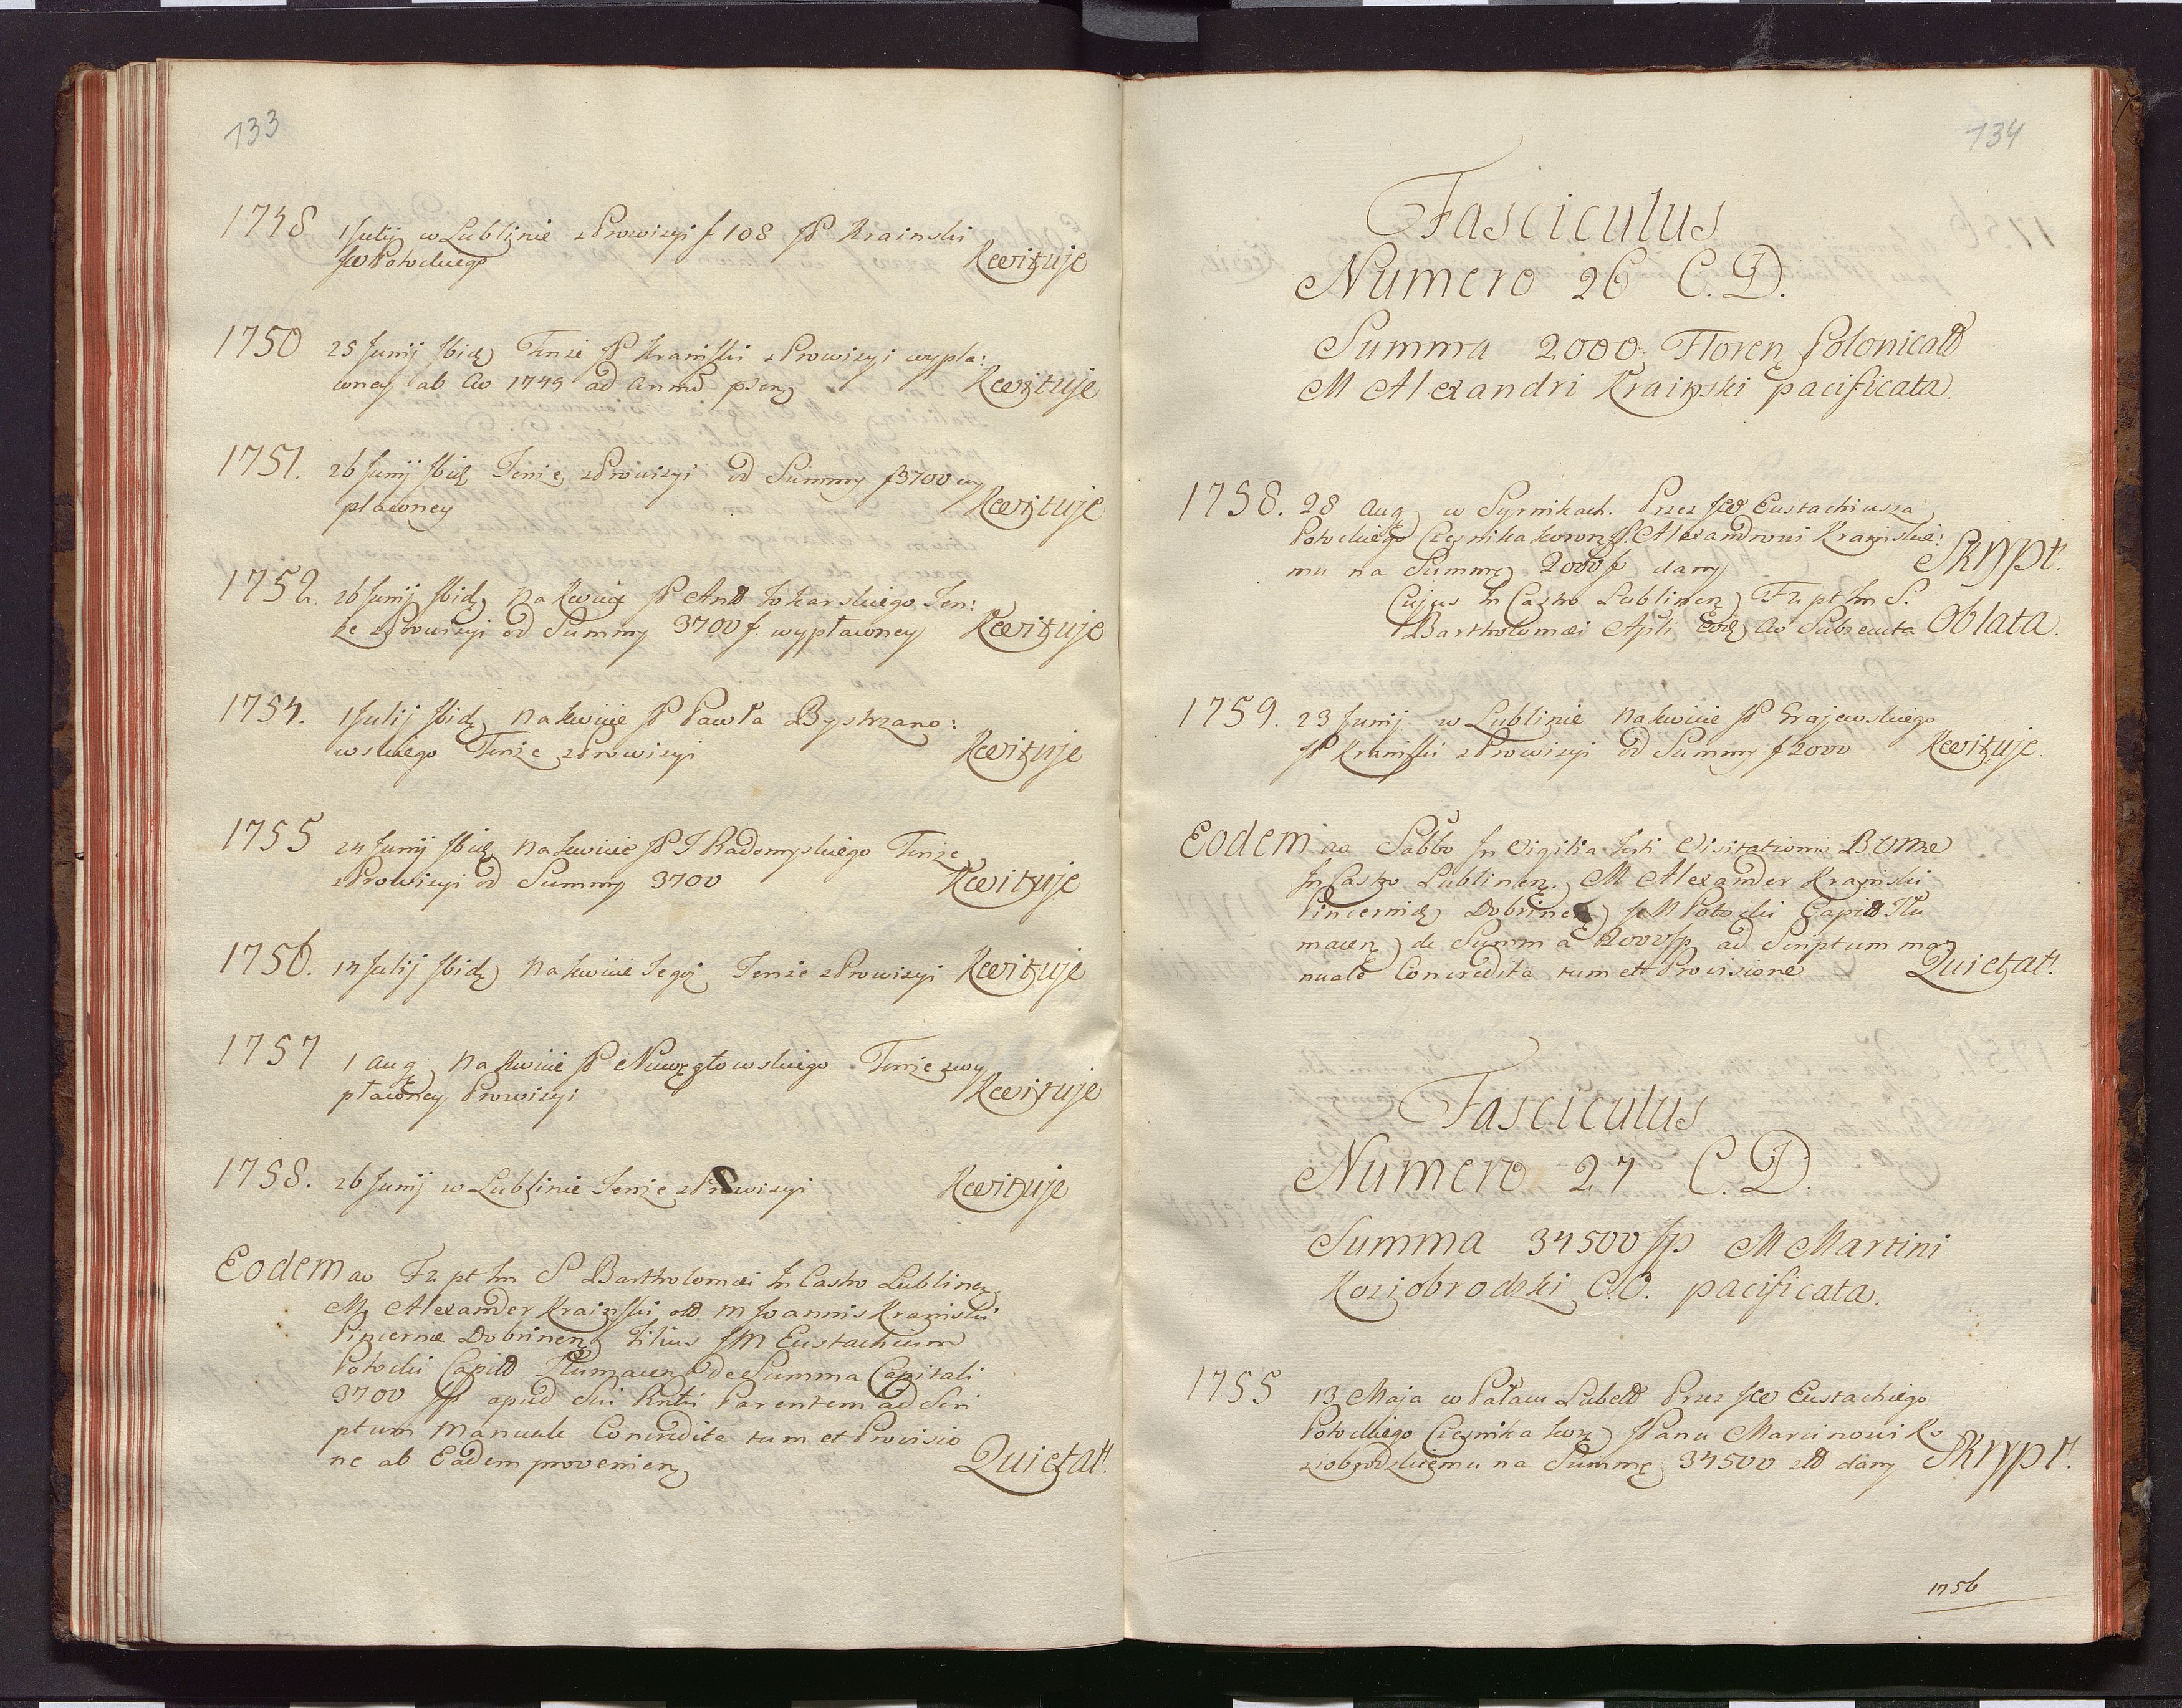 133
1748 1 Julij w Lublinie z Prowizyi f 108 JP Krainski
JW Potockiego Kwituje
1750 25 Junij Ibid Tenże JP Krainski z Prowizyi wypła:
coney ab Ao 1749 ad Annum Kwituje
1751. 26 Junij Ibid Tenże z Prowizyi od Summy f 3700 wy
płaconey Kwituje
1752. 26 Junij Ibid Na Kwicie JP Tokarskiego Ten:
że z Prowizyi od Summy 3700 f. wypłaconey Kwituje
1754. 1 Julij Ibid Na kwicie JP Pawła Bystrzano:
wskiego Tenże z Prowizyi Kwituje
1755 24 Junij Ibid Na kwicie JP J Radomyskiego Tenże
z Prowizyi od Summy 3700 Kwituje
1756. 14 Julij Ibid Na kwicie Tegoż Tenże z Prowizyi Kwituje
1757 1 Aug Na Kwicie JP Tenże z wy
płaconey Prowizyi Kwituje
1758. 26 Junij w Lublinie Tenże z Prowizyi Kwituje
Eodem ao Fr pt Im S Bartholomæi In Castro Lublinen
M Alexander Krainski olim M Joannis Krainski
Pincernæ Dobrinen Filius JM Eustachium
Potocki Capit Tlumacen de Summa Capitali
3700 fp apud Sui Parentem ad Scri
ptum Manuale Concredita tum et Provisio
ne ab Eadem provenien Quietat.
134
Fasciculus
Numero 26 C.D.
Summa 2000 Floren Polonical
M Alexandri Krainski pacificata.
1758. 28 Aug w Syrnikach. Przez JW Eustachiusza
Potockiego Cześnika Koron JP. Alexandrowi Krainskie:
mu na Summę 2000 f dany Skrypt.
Cujus In Castro Lublinen Fr pt Im S.
Bartholomæi Apli Eod Ao Subsecuta Oblata.
1759. 23 Junij w Lublinie Na kwicie JP Grajewskiego
JP Krainski z Prowizyi od Summy f 2000 Kwituje.
Eodem ao Sabbo In Vigilia Festi Visitationis BVMæ
In Castro Lublinen. M Alexander Krainski
Pincernid Dobrinen JM Potocki Capit Tlu
macen de Summa 2000 fp ad Scriptum ma
nuale Concredita tum et Provisione Quietat.
Fasciculus
Numero 27 C.D.
Summa 34500 fp M Martini
Koziobrodzki C.O. pacificata.
1755 13 Maja w Pałacu Lubel Przez JW Eustachiego
Potockiego Cześnika Kor JPanu Marcinowi Ko
ziobrodzkiemu na Summę 34500 zł dany Skrypt.
1756